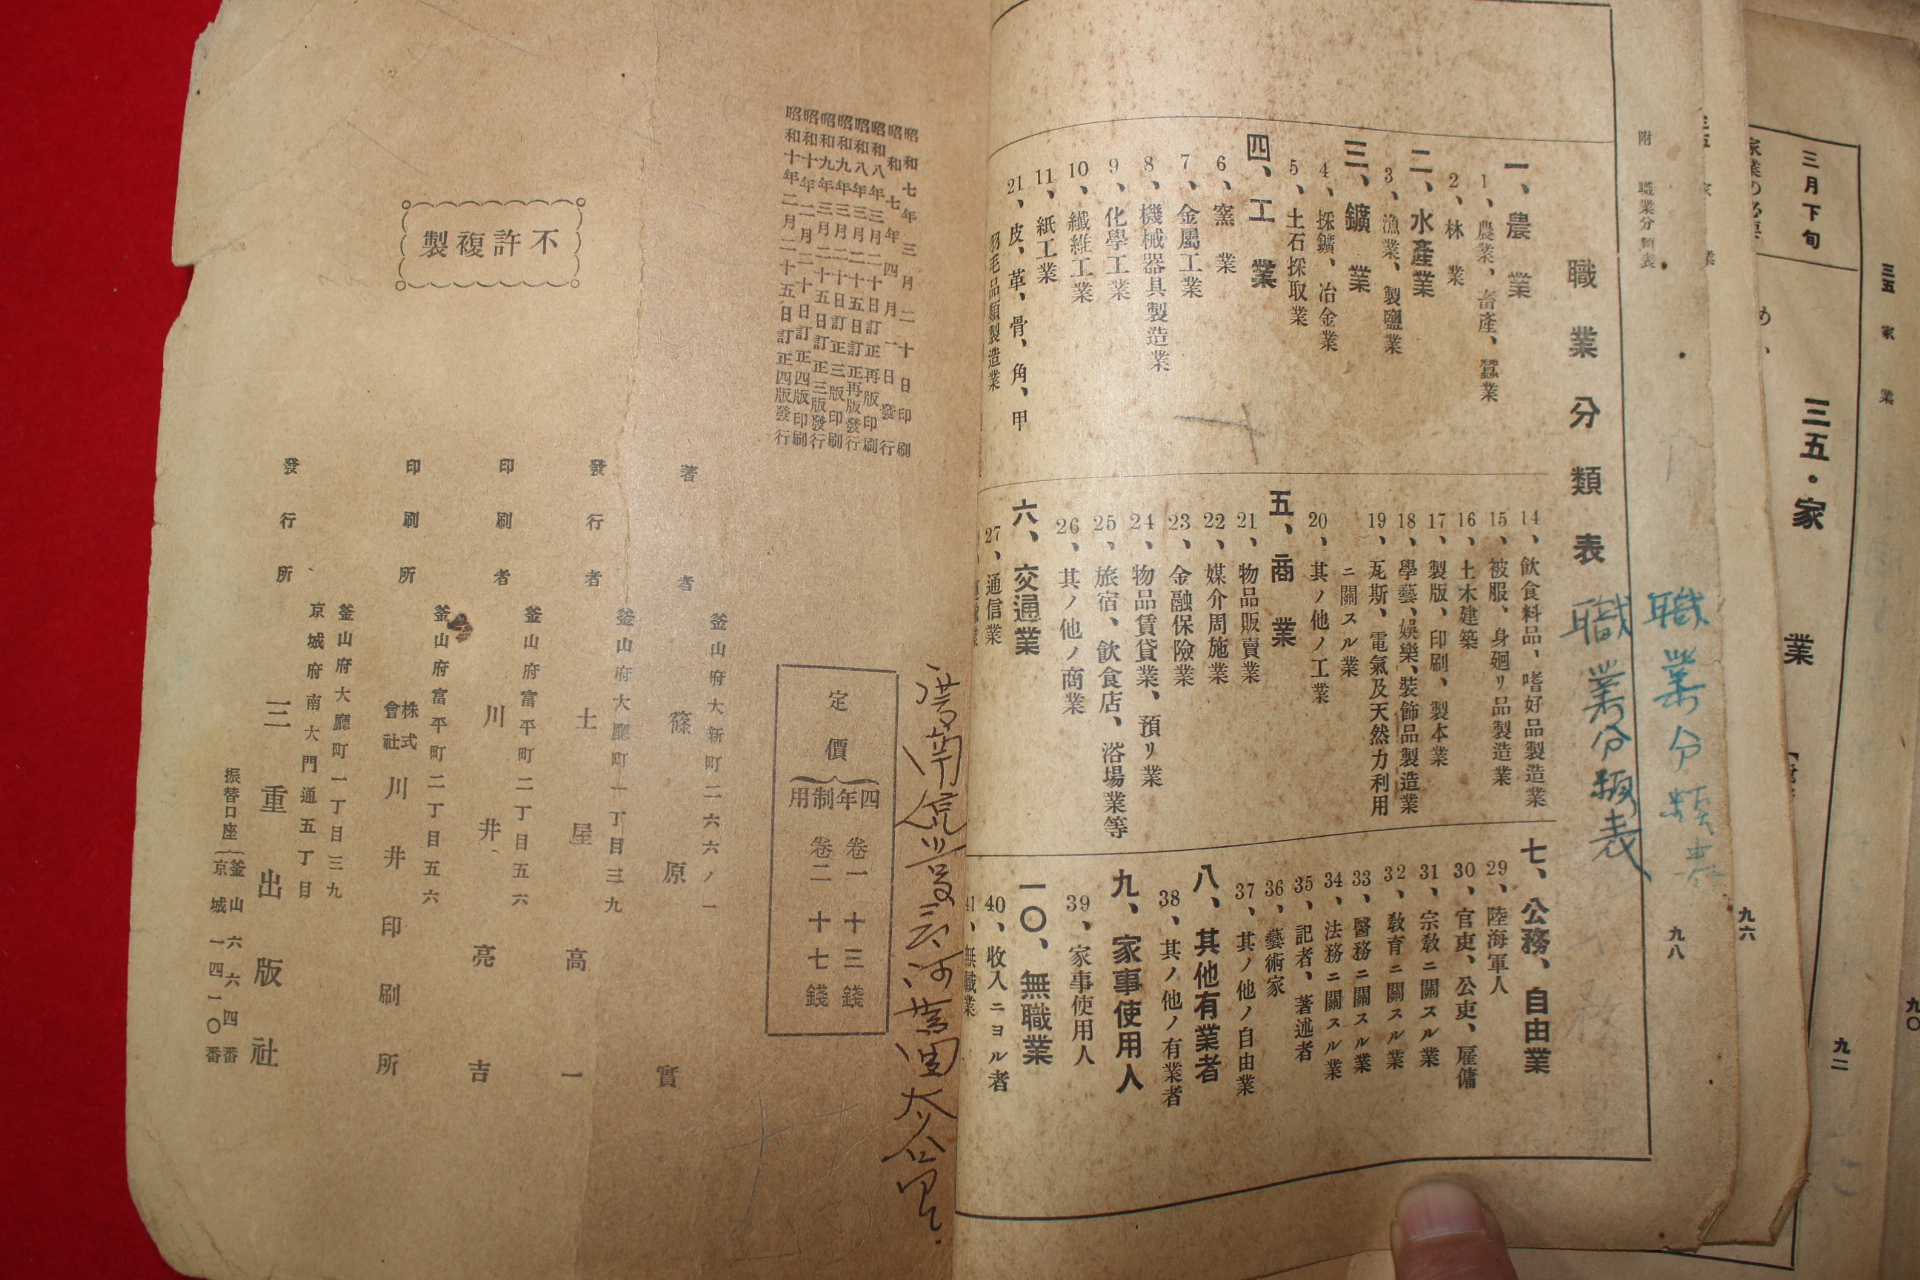 三五 家 業
九〇
三月下旬
三五・家 業
九二
九六
附 職業分類表
九八
職業分類表
職業分類表
職業分類表
一、農業
1、農業、畜產、蠶業
2、林業
二、水產業
3、漁業、製鹽業
三、鑛業
4、採鑛、冶金業
5、土石採取業
四、工業
6、窯業
7、金屬工業
8、機械器具製造業
9、化學工業
10、纖維工業
11、紙工業
21、皮、革、骨、角、甲
羽毛品類製造業
14、飲食料品、嗜好品製造業
15、被服、身廻リ品製造業
16、土木建築
17、製版、印刷、製本業
18、學藝、娛樂、裝飾品製造業
19、瓦斯、電氣及天然力利用
ニ關スル業
20、其ノ他ノ工業
五、商業
21、物品販賣業
22、媒介周施業
23、金融保險業
24、物品賃貸業、預リ業
25、旅宿、飲食店、浴場業等
26、其ノ他ノ商業
六、交通業
27、通信業
七、公務、自由業
29、陸海軍人
30、官吏、公吏、雇傭
31、宗敎ニ關スル業
32、敎育ニ關スル業
33、醫務ニ關スル業
34、法務ニ關スル業
35、記者、著述者
36、藝術家
37、其ノ他ノ自由業
八、其他有業者
38、其ノ他ノ有業者
九、家事使用人
39、家事使用人
一〇、無職業
40、收入ニヨル者
41、無職業
昭和七年三月二十日印刷
昭和七年四月一日發行
昭和八年三月二十日訂正再版印刷
昭和八年三月二十五日訂正再版發行
昭和九年三月二十日訂正三版印刷
昭和九年三月二十五日訂正三版發行
昭和十年二月二十日訂正四版印刷
昭和十年二月二十五日訂正四版發行
定價
四年制用
卷一 十三錢
卷二 十七錢
不許複製
釜山府大新町二六六ノ一
著者 篠原實
釜山府大廳町一丁目三九
發行者 土屋高一
釜山府富平町二丁目五六
印刷者 川井亮吉
釜山府富平町二丁目五六
印刷所 株式會社川井印刷所
釜山府大廳町一丁目三九
京城府南大門通五丁目
發行所 三重出版社
振替口座 釜山六六四番
京城一四一〇番